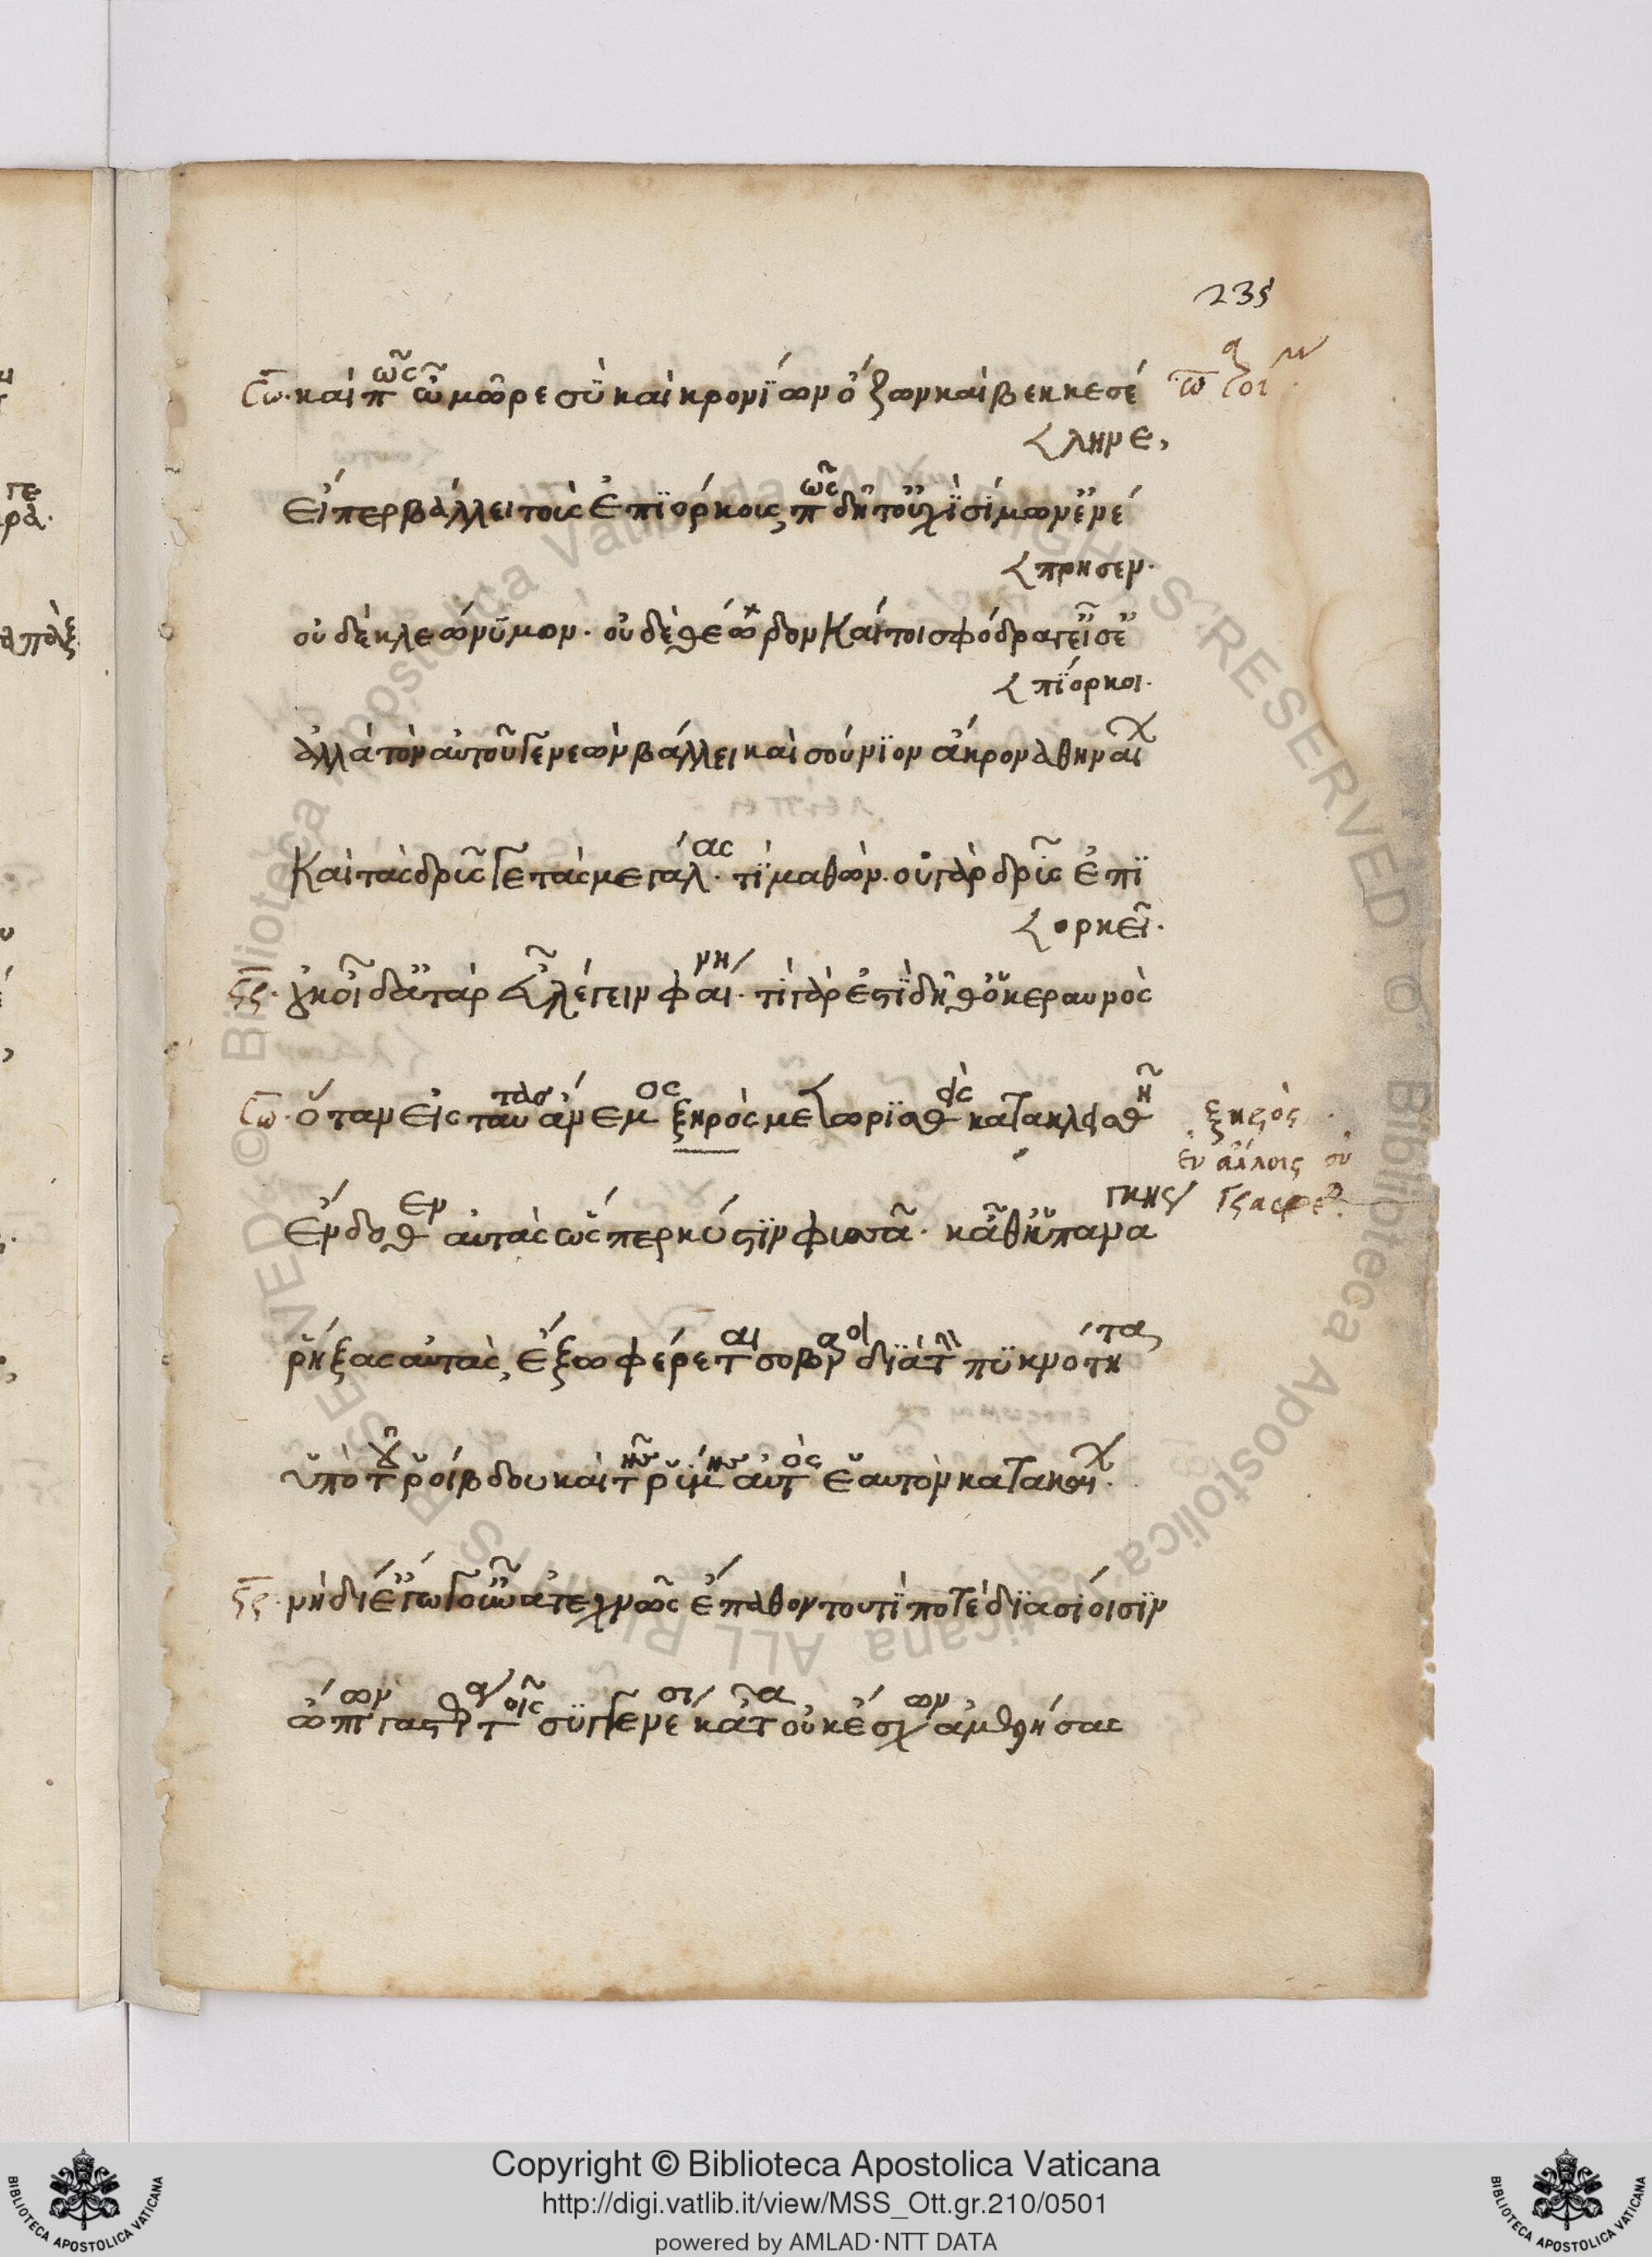 235
Σω· καὶ πῶς ὦ μῶρε σὺ καὶ κρονίων ὄζων καὶ βεκκεσέ
ληνε,
εἴπερ βάλλει τοὺς ἐπιόρκους, πῶς δῆτ' οὐχὶ σίμων' ἐνέ
πρησεν·
οὐδὲ κλεώνυμον· οὐδὲ θέωρον καίτοι σφόδρα γ' εἴσ' ἐ
πίορκοι·
ἀλλὰ τὸν αὑτοῦ γε νεὼν βάλλει καὶ σούνιον ἄκρον ἀθηναί
καὶ τὰς δρῦς γε τὰς μεγάλας· τί μαθών· οὐ γὰρ δρῦς ἐπι
ορκεῖ·
Στ· οὐκ οἶδ' ἀτὰρ εὖ λέγειν φαίνῃ· τί γάρ ἐστι δῆθ' ὁ κεραυνὸς
Σω· ὅταν εἰς ταύτας ἄνεμος ξηρὸς μετεωρισθεὶς κατακλεισθῇ
ξηρὸς
ἐν ἄλλοις οὐ
ἔνδοθεν αὐτὰς ὥσπερ κύστιν φυσᾷ· κἄπειθ' ὑπ' ἀνά
γκης
ῥήξας αὐτὰς, ἔξω φέρεται σοβαρὸς διὰ τὴν πυκνότητα
ὑπὸ τοῦ ῥοίβδου καὶ τῆς ῥύμης αὐτὸς ἑαυτὸν κατακαίων·
Στ· νὴ δί' ἐγὼ γοῦν ἀτεχνῶς ἔπαθον τουτί ποτε διασίοισιν
ὀπτῶν γαστέρα τοῖς συγγενέσι κᾆτ' οὐκ ἔσχων ἀμελήσας
Copyright © Biblioteca Apostolica Vaticana
http://digi.vatlib.it/view/MSS_Ott.gr.210/0501
powered by AMLAD·NTT DATA
BIBLIOTECA APOSTOLICA VATICANA
BIBLIOTECA APOSTOLICA VATICANA